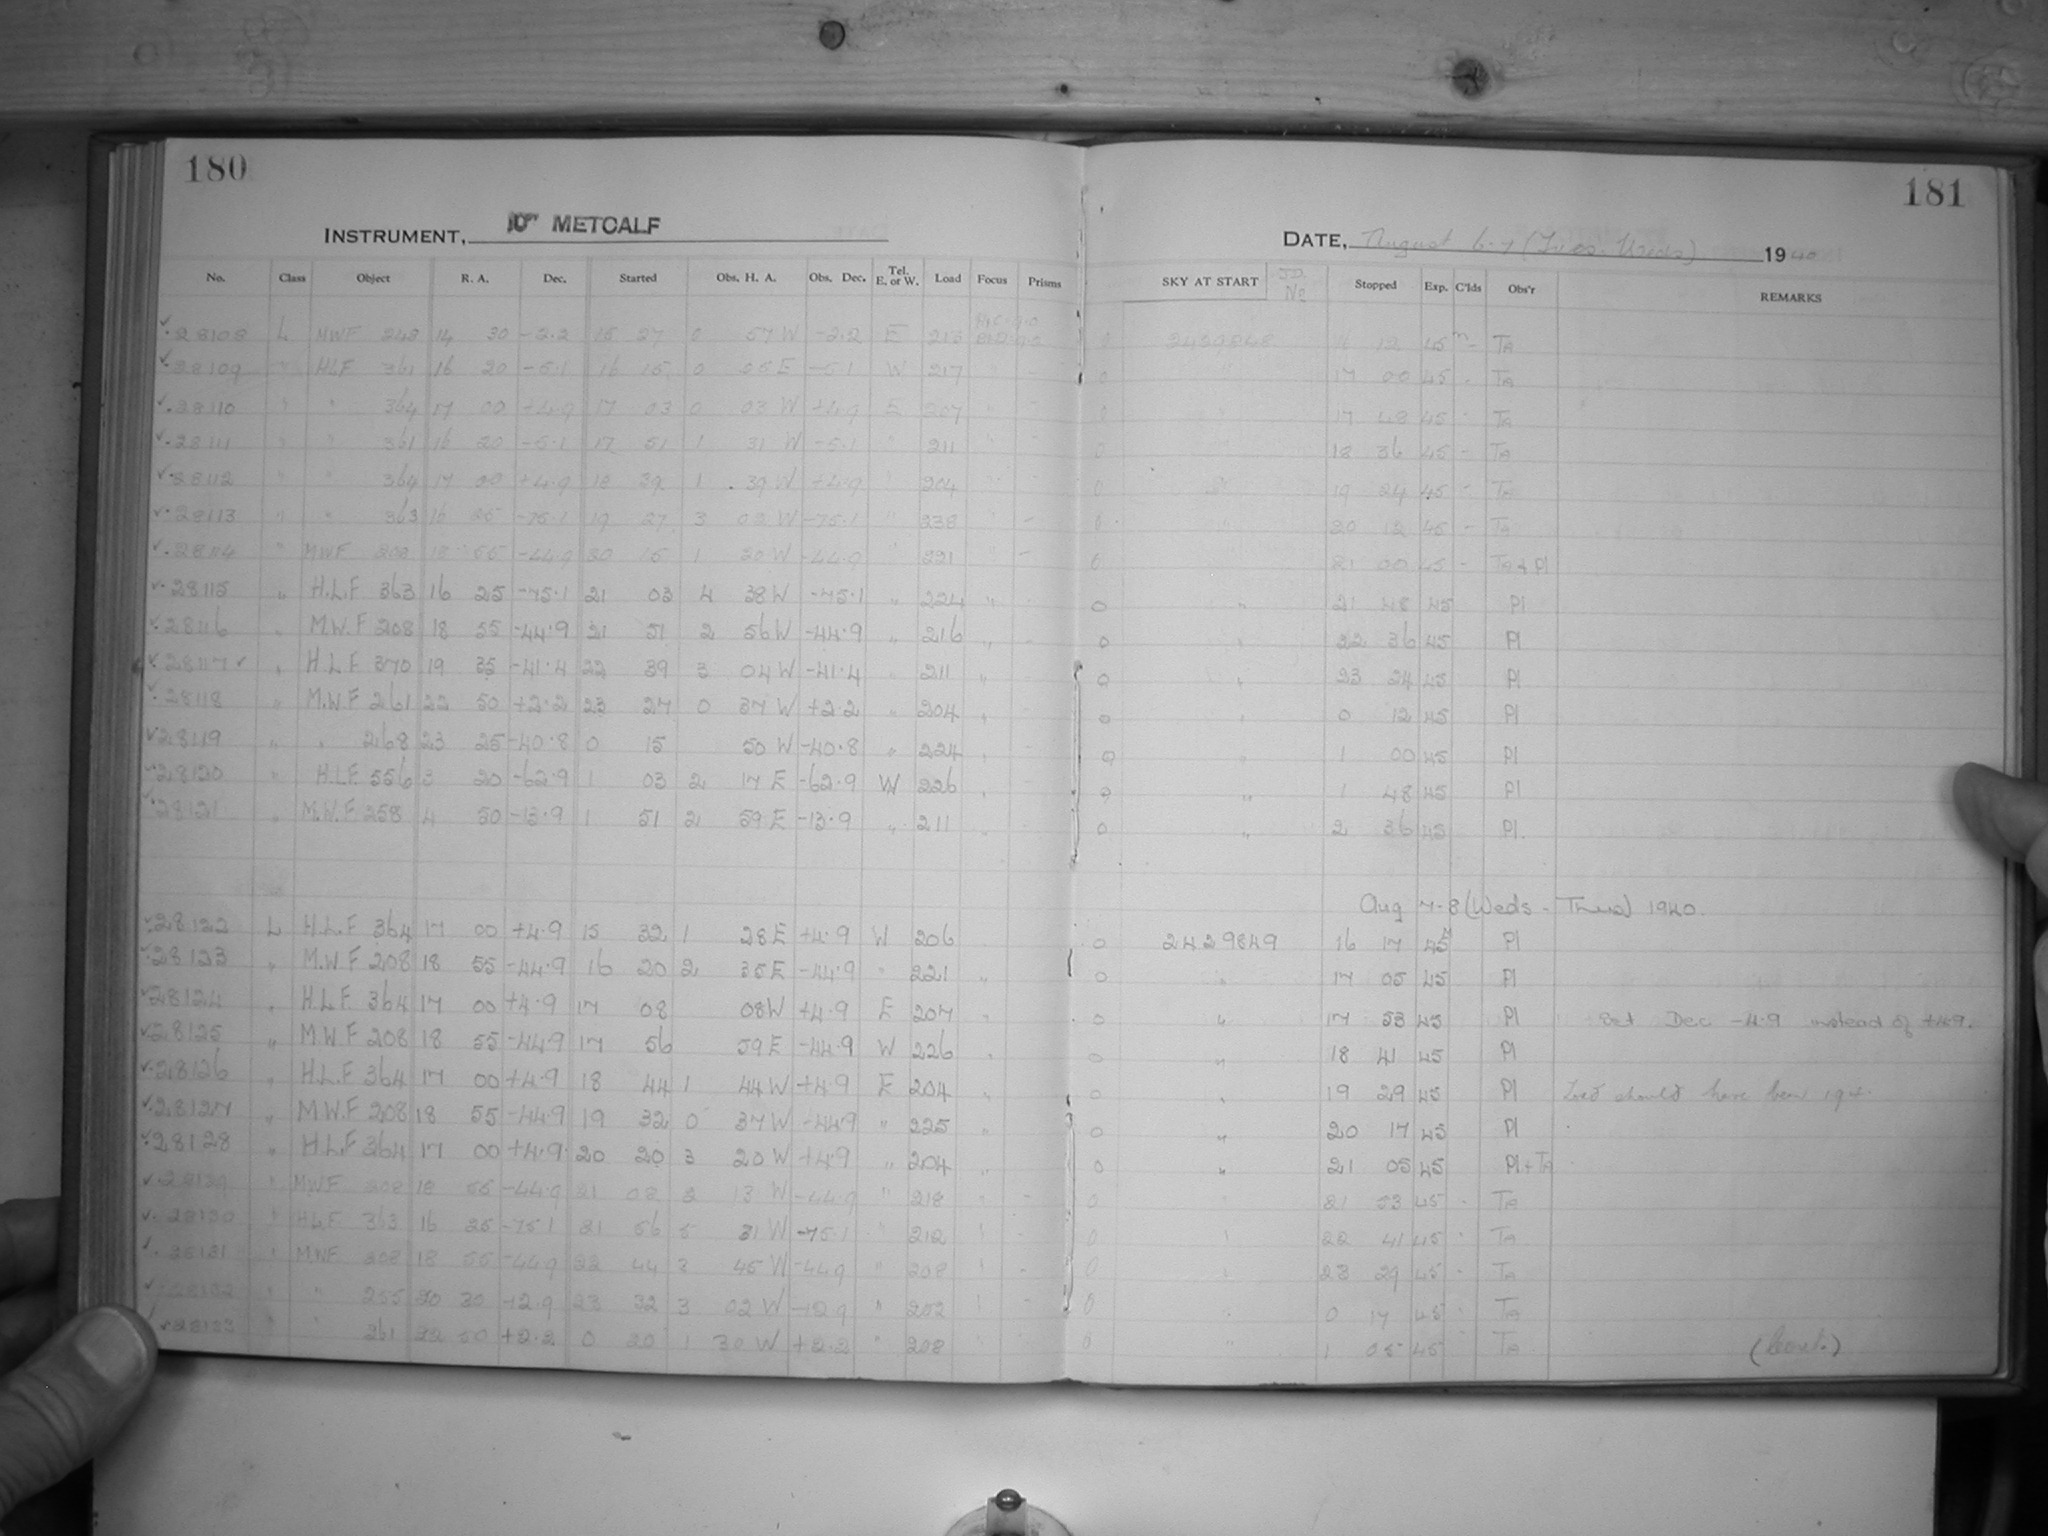 180
INSTRUMENT, 10" METCALF
No. Class Object R. A. Dec. Started Obs. H. A. Obs. Dec. Tel. E. or W. Load Focus Prisms
28108 L MWF 248 14 30 -2.2 15 27 0 57 W -2.2 E 213
28109 " HLF 361 16 20 -5.1 16 15 0 05 E -5.1 W 217 "
28110 " " 364 17 00 +4.9 17 03 0 03 W +4.9 E 207 "
28111 " " 361 16 20 -5.1 17 51 1 31 W -5.1 " 211 "
28112 " " 364 17 00 +4.9 18 39 1 39 W +4.9 " 204 "
28113 " " 363 16 25 -75.1 19 27 3 03 W -75.1 " 238 " -
28114 " MWF 208 18 55 -44.9 20 15 1 20 W -44.9 " 221 " -
28115 " H.L.F 363 16 25 -75.1 21 03 4 38 W -75.1 " 224 "
28116 " M.W.F 208 18 55 -44.9 21 51 2 56 W -44.9 " 216 "
28117 " H.L.F 370 19 35 -41.4 22 39 3 04 W -41.4 " 211 "
28118 " M.W.F 261 22 50 +2.2 23 27 0 37 W +2.2 " 204 "
28119 " " 268 23 25 -40.8 0 15 50 W -40.8 " 224 "
28120 " H.L.F. 556 3 20 -62.9 1 03 2 17 E -62.9 W 226 "
28121 " M.W.F 258 4 50 -13.9 1 51 2 59 E -13.9 " 211 "
28122 L H.L.F 364 17 00 +4.9 15 32 1 28 E +4.9 W 206
28123 " M.W.F 208 18 55 -44.9 16 20 2 35 E -44.9 " 221 "
28124 " H.L.F. 364 17 00 +4.9 17 08 08 W +4.9 E 207 "
28125 " M.W.F 208 18 55 -44.9 17 56 59 E -44.9 W 226 "
28126 " H.L.F 364 17 00 +4.9 18 44 1 44 W +4.9 E 204 "
28127 " M.W.F 208 18 55 -44.9 19 32 0 37 W -44.9 " 225 "
28128 " H.L.F 364 17 00 +4.9 20 20 3 20 W +4.9 " 204 "
28129 " MWF 208 18 55 -44.9 21 08 2 13 W -44.9 " 218 " -
28130 " HLF 363 16 25 -75.1 21 56 5 31 W -75.1 " 212 " -
28131 " MWF 208 18 55 -44.9 22 44 3 45 W -44.9 " 208 " -
28132 " " 255 20 30 +2.9 23 32 3 02 W +2.9 " 202 " -
28133 " " 261 22 50 +2.2 0 20 1 30 W +2.2 " 208
181
DATE, August 6-7 (Tues. Weds) 1940
SKY AT START J.D. No Stopped Exp. C'lds Obs'r REMARKS
0 2429848 16 12 45 m - TA
0 " 17 00 45 - TA
0 " 17 48 45 - TA
0 18 36 45 - TA
0 " 19 24 45 - TA
0 " 20 12 45 - TA
0 " 21 00 45 - TA & Pl
0 " 21 48 45 Pl
0 " 22 36 45 Pl
0 " 23 24 45 Pl
0 " 0 12 45 Pl
0 " 1 00 45 Pl
0 " 1 48 45 Pl
0 " 2 36 45 Pl.
Aug 7-8 (Weds - Thurs) 1940.
0 2429849 16 17 45 Pl
0 " 17 05 45 Pl
0 " 17 53 45 Pl Set Dec -4.9 instead of +4.9.
0 " 18 41 45 Pl
0 " 19 29 45 Pl Load should have been 194.
0 " 20 17 45 Pl
0 " 21 05 45 Pl + TA
0 " 21 53 45 - TA
0 " 22 41 45 - TA
0 " 23 29 45 - TA
0 " 0 17 45 TA
0 " 1 05 45 TA
(Cont.)